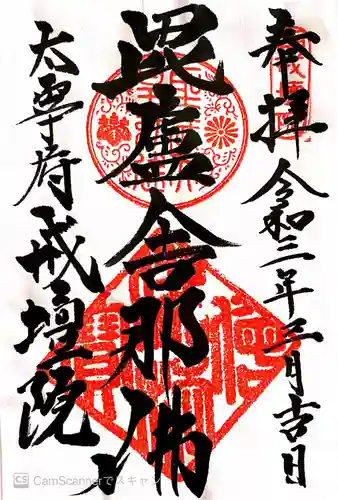 奉拝
令和三年三月吉日
毘盧舎那佛
太宰府
戒壇院
CS CamScannerでスキャン